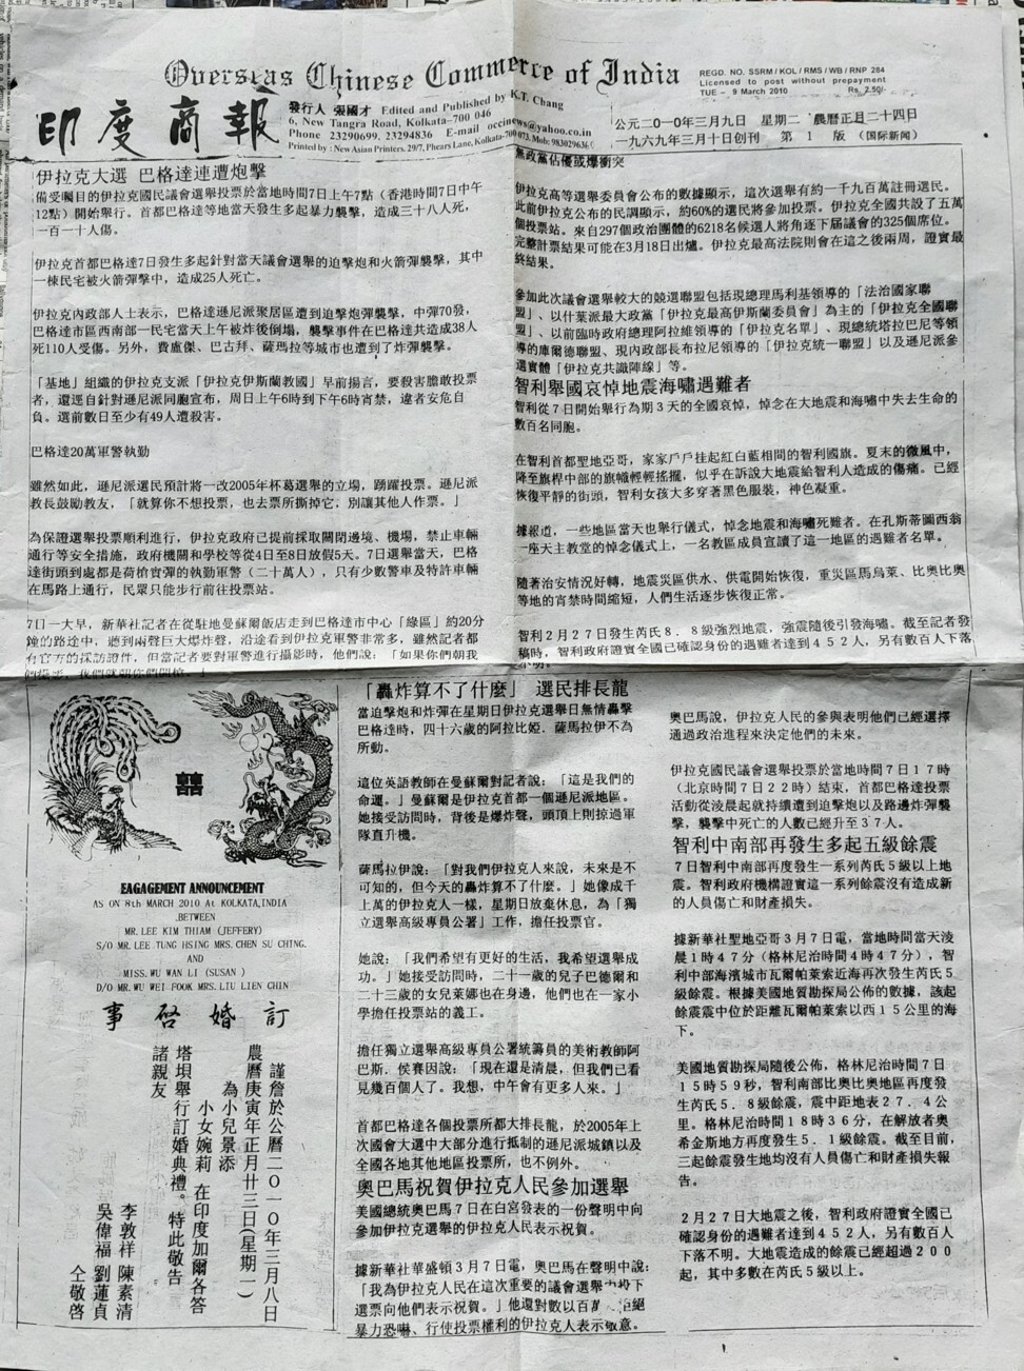 Overseas Chinese Commerce of India
REGD. NO. SSRM / KOL / RMS / WB / RNP 284
Licensed to post without prepayment
TUE – 9 March 2010 Rs. 2.50/-
印度商報
發行人 張國才 Edited and Published by K.T. Chang
6, New Tangra Road, Kolkata–700 046
Phone 23290699, 23294836 E-mail occinews@yahoo.co.in
Printed by : New Asian Printers. 29/7, Phears Lane, Kolkatta-700 073.
公元二○一○年三月九日 星期二 農曆正月二十四日
一九六九年三月十日创刊 第 1 版 (国际新闻)
伊拉克大選 巴格達連遭炮擊
備受矚目的伊拉克國民議會選舉投票於當地時間7日上午7點（香港時間7日中午
12點）開始舉行。首都巴格達等地當天發生多起暴力襲擊，造成三十八人死，
一百一十人傷。
伊拉克首都巴格達7日發生多起針對當天議會選舉的迫擊炮和火箭彈襲擊，其中
一棟民宅被火箭彈擊中，造成25人死亡。
伊拉克內政部人士表示，巴格達遜尼派聚居區遭到迫擊炮彈襲擊，中彈70發，
巴格達市區西南部一民宅當天上午被炸後倒塌，襲擊事件在巴格達共造成38人
死110人受傷。另外，費盧傑、巴古拜、薩瑪拉等城市也遭到了炸彈襲擊。
「基地」組織的伊拉克支派「伊拉克伊斯蘭教國」早前揚言，要殺害膽敢投票
者，還逕自針對遜尼派同胞宣布，周日上午6時到下午6時宵禁，違者安危自
負。選前數日至少有49人遭殺害。
巴格達20萬軍警執勤
雖然如此，遜尼派選民預計將一改2005年杯葛選舉的立場，踴躍投票。遜尼派
教長鼓勵教友，「就算你不想投票，也去票所撕掉它，別讓其他人作票。」
為保證選舉投票順利進行，伊拉克政府已提前採取關閉邊境、機場，禁止車輛
通行等安全措施，政府機關和學校等從4日至8日放假5天。7日選舉當天，巴格
達街頭到處都是荷槍實彈的執勤軍警（二十萬人），只有少數警車及特許車輛
在馬路上通行，民眾只能步行前往投票站。
7日一大早，新華社記者在從駐地曼蘇爾飯店走到巴格達市中心「綠區」約20分
鐘的路途中，聽到兩聲巨大爆炸聲，沿途看到伊拉克軍警非常多，雖然記者都
有官方的採訪證件，但當記者要對軍警進行攝影時，他們說：「如果你們朝我
無政黨佔優或爆衝突
伊拉克高等選舉委員會公布的數據顯示，這次選舉有約一千九百萬註冊選民。
此前伊拉克公布的民調顯示，約60%的選民將參加投票。伊拉克全國共設了五萬
個投票站。來自297個政治團體的6218名候選人將角逐下屆議會的325個席位。
完整計票結果可能在3月18日出爐。伊拉克最高法院則會在這之後兩周，證實最
終結果。
參加此次議會選舉較大的競選聯盟包括現總理馬利基領導的「法治國家聯
盟」、以什葉派最大政黨「伊拉克最高伊斯蘭委員會」為主的「伊拉克全國聯
盟」、以前臨時政府總理阿拉維領導的「伊拉克名單」、現總統塔拉巴尼等領
導的庫爾德聯盟、現內政部長布拉尼領導的「伊拉克統一聯盟」以及遜尼派參
選實體「伊拉克共識陣線」等。
智利舉國哀悼地震海嘯遇難者
智利從7日開始舉行為期3天的全國哀悼，悼念在大地震和海嘯中失去生命的
數百名同胞。
在智利首都聖地亞哥，家家戶戶挂起紅白藍相間的智利國旗。夏末的微風中，
降至旗桿中部的旗幟輕輕搖擺，似乎在訴說大地震給智利人造成的傷痛。已經
恢復平靜的街頭，智利女孩大多穿著黑色服裝，神色凝重。
據報道，一些地區當天也舉行儀式，悼念地震和海嘯死難者。在孔斯蒂圖西翁
一座天主教堂的悼念儀式上，一名教區成員宣讀了這一地區的遇難者名單。
隨著治安情況好轉，地震災區供水、供電開始恢復，重災區馬烏萊、比奧比奧
等地的宵禁時間縮短，人們生活逐步恢復正常。
智利2月27日發生芮氏8．8級強烈地震，強震隨後引發海嘯。截至記者發
稿時，智利政府證實全國已確認身份的遇難者達到452人，另有數百人下落
不明。
囍
EAGAGEMENT ANNOUNCEMENT
AS ON 8th MARCH 2010 At KOLKATA,INDIA
.BETWEEN
MR. LEE KIM THIAM (JEFFERY)
S/O MR. LEE TUNG HSING MRS. CHEN SU CHING.
AND
MISS. WU WAN LI (SUSAN )
D/O MR. WU WEI FOOK MRS. LIU LIEN CHIN
訂婚啓事
謹詹於公曆二○一○年三月八日
農曆庚寅年正月廿三日(星期一)
為小兒景添
小女婉莉 在印度加爾各答
塔埧舉行訂婚典禮。特此敬告
諸親友
李敦祥 陳素清
吳偉福 劉蓮貞
仝敬啓
「轟炸算不了什麼」 選民排長龍
當迫擊炮和炸彈在星期日伊拉克選舉日無情轟擊
巴格達時，四十六歲的阿拉比婭．薩馬拉伊不為
所動。
這位英語教師在曼蘇爾對記者說：「這是我們的
命運。」曼蘇爾是伊拉克首都一個遜尼派地區。
她接受訪問時，背後是爆炸聲，頭頂上則掠過軍
隊直升機。
薩馬拉伊說：「對我們伊拉克人來說，未來是不
可知的，但今天的轟炸算不了什麼。」她像成千
上萬的伊拉克人一樣，星期日放棄休息，為「獨
立選舉高級專員公署」工作，擔任投票官。
她說：「我們希望有更好的生活，我希望選舉成
功。」她接受訪問時，二十一歲的兒子巴德爾和
二十三歲的女兒萊娜也在身邊，他們也在一家小
學擔任投票站的義工。
擔任獨立選舉高級專員公署統籌員的美術教師阿
巴斯．侯賽因說：「現在還是清晨，但我們已看
見幾百個人了。我想，中午會有更多人來。」
首都巴格達各個投票所都大排長龍，於2005年上
次國會大選中大部分進行抵制的遜尼派城鎮以及
全國各地其他地區投票所，也不例外。
奧巴馬祝賀伊拉克人民參加選舉
美國總統奧巴馬7日在白宮發表的一份聲明中向
參加伊拉克選舉的伊拉克人民表示祝賀。
據新華社華盛頓3月7日電，奧巴馬在聲明中說：
「我為伊拉克人民在這次重要的議會選舉中投下
選票向他們表示祝賀。」他還對數以百萬 拒絕
暴力恐嚇、行使投票權利的伊拉克人表示敬意。
奧巴馬說，伊拉克人民的參與表明他們已經選擇
通過政治進程來決定他們的未來。
伊拉克國民議會選舉投票於當地時間7日17時
（北京時間7日22時）結束，首都巴格達投票
活動從淩晨起就持續遭到迫擊炮以及路邊炸彈襲
擊，襲擊中死亡的人數已經升至37人。
智利中南部再發生多起五級餘震
7日智利中南部再度發生一系列芮氏5級以上地
震。智利政府機構證實這一系列餘震沒有造成新
的人員傷亡和財產損失。
據新華社聖地亞哥3月7日電，當地時間當天淩
晨1時47分（格林尼治時間4時47分），智
利中部海濱城市瓦爾帕萊索近海再次發生芮氏5
級餘震。根據美國地質勘探局公佈的數據，該起
餘震震中位於距離瓦爾帕萊索以西15公里的海
下。
美國地質勘探局隨後公佈，格林尼治時間7日
15時59秒，智利南部比奧比奧地區再度發
生芮氏5．8級餘震，震中距地表27．4公
里。格林尼治時間18時36分，在解放者奧
希金斯地方再度發生5．1級餘震。截至目前，
三起餘震發生地均沒有人員傷亡和財產損失報
告。
2月27日大地震之後，智利政府證實全國已
確認身份的遇難者達到452人，另有數百人
下落不明。大地震造成的餘震已經超過200
起，其中多數在芮氏5級以上。